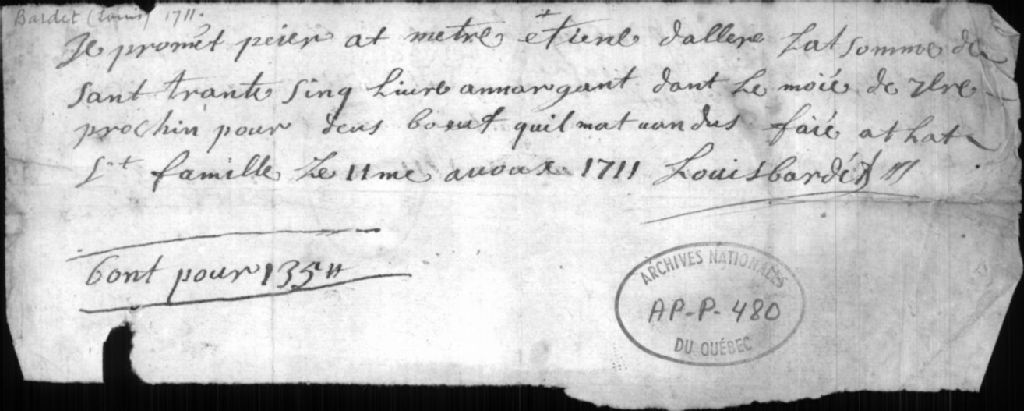 Bardet (Louis) 1711.
Je promêt peier at metre etiene dallere Lat somme de
sant trante sinq livre annargant dont Le moié de 7bre
prochin pour deus boeuf quil mat vandus faié at hat
St famille Le 11me avoux 1711 Louis bardét
bont pour 135#
ARCHIVES NATIONALES
AP-P-480
DU QUÉBEC